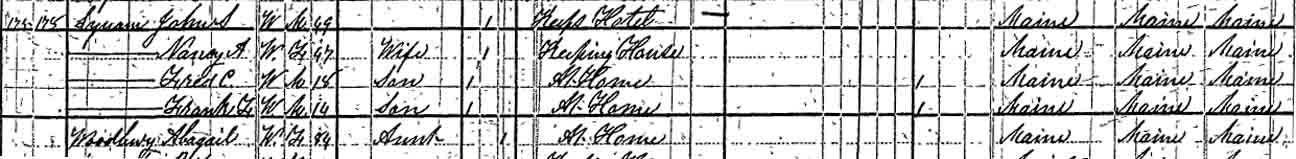 178 178 John S W M 49 1 Keeps Hotel Maine Maine Maine
Nancy A W. F 47 Wife 1 Keeping House Maine Maine Maine
Fred C. W M 18 Son 1 At Home 1 Maine Maine Maine
Frank F W M 14 Son 1 At Home 1 Maine Maine Maine
Woodbury Abagail W. F Aunt 1 At Home Maine Maine Maine